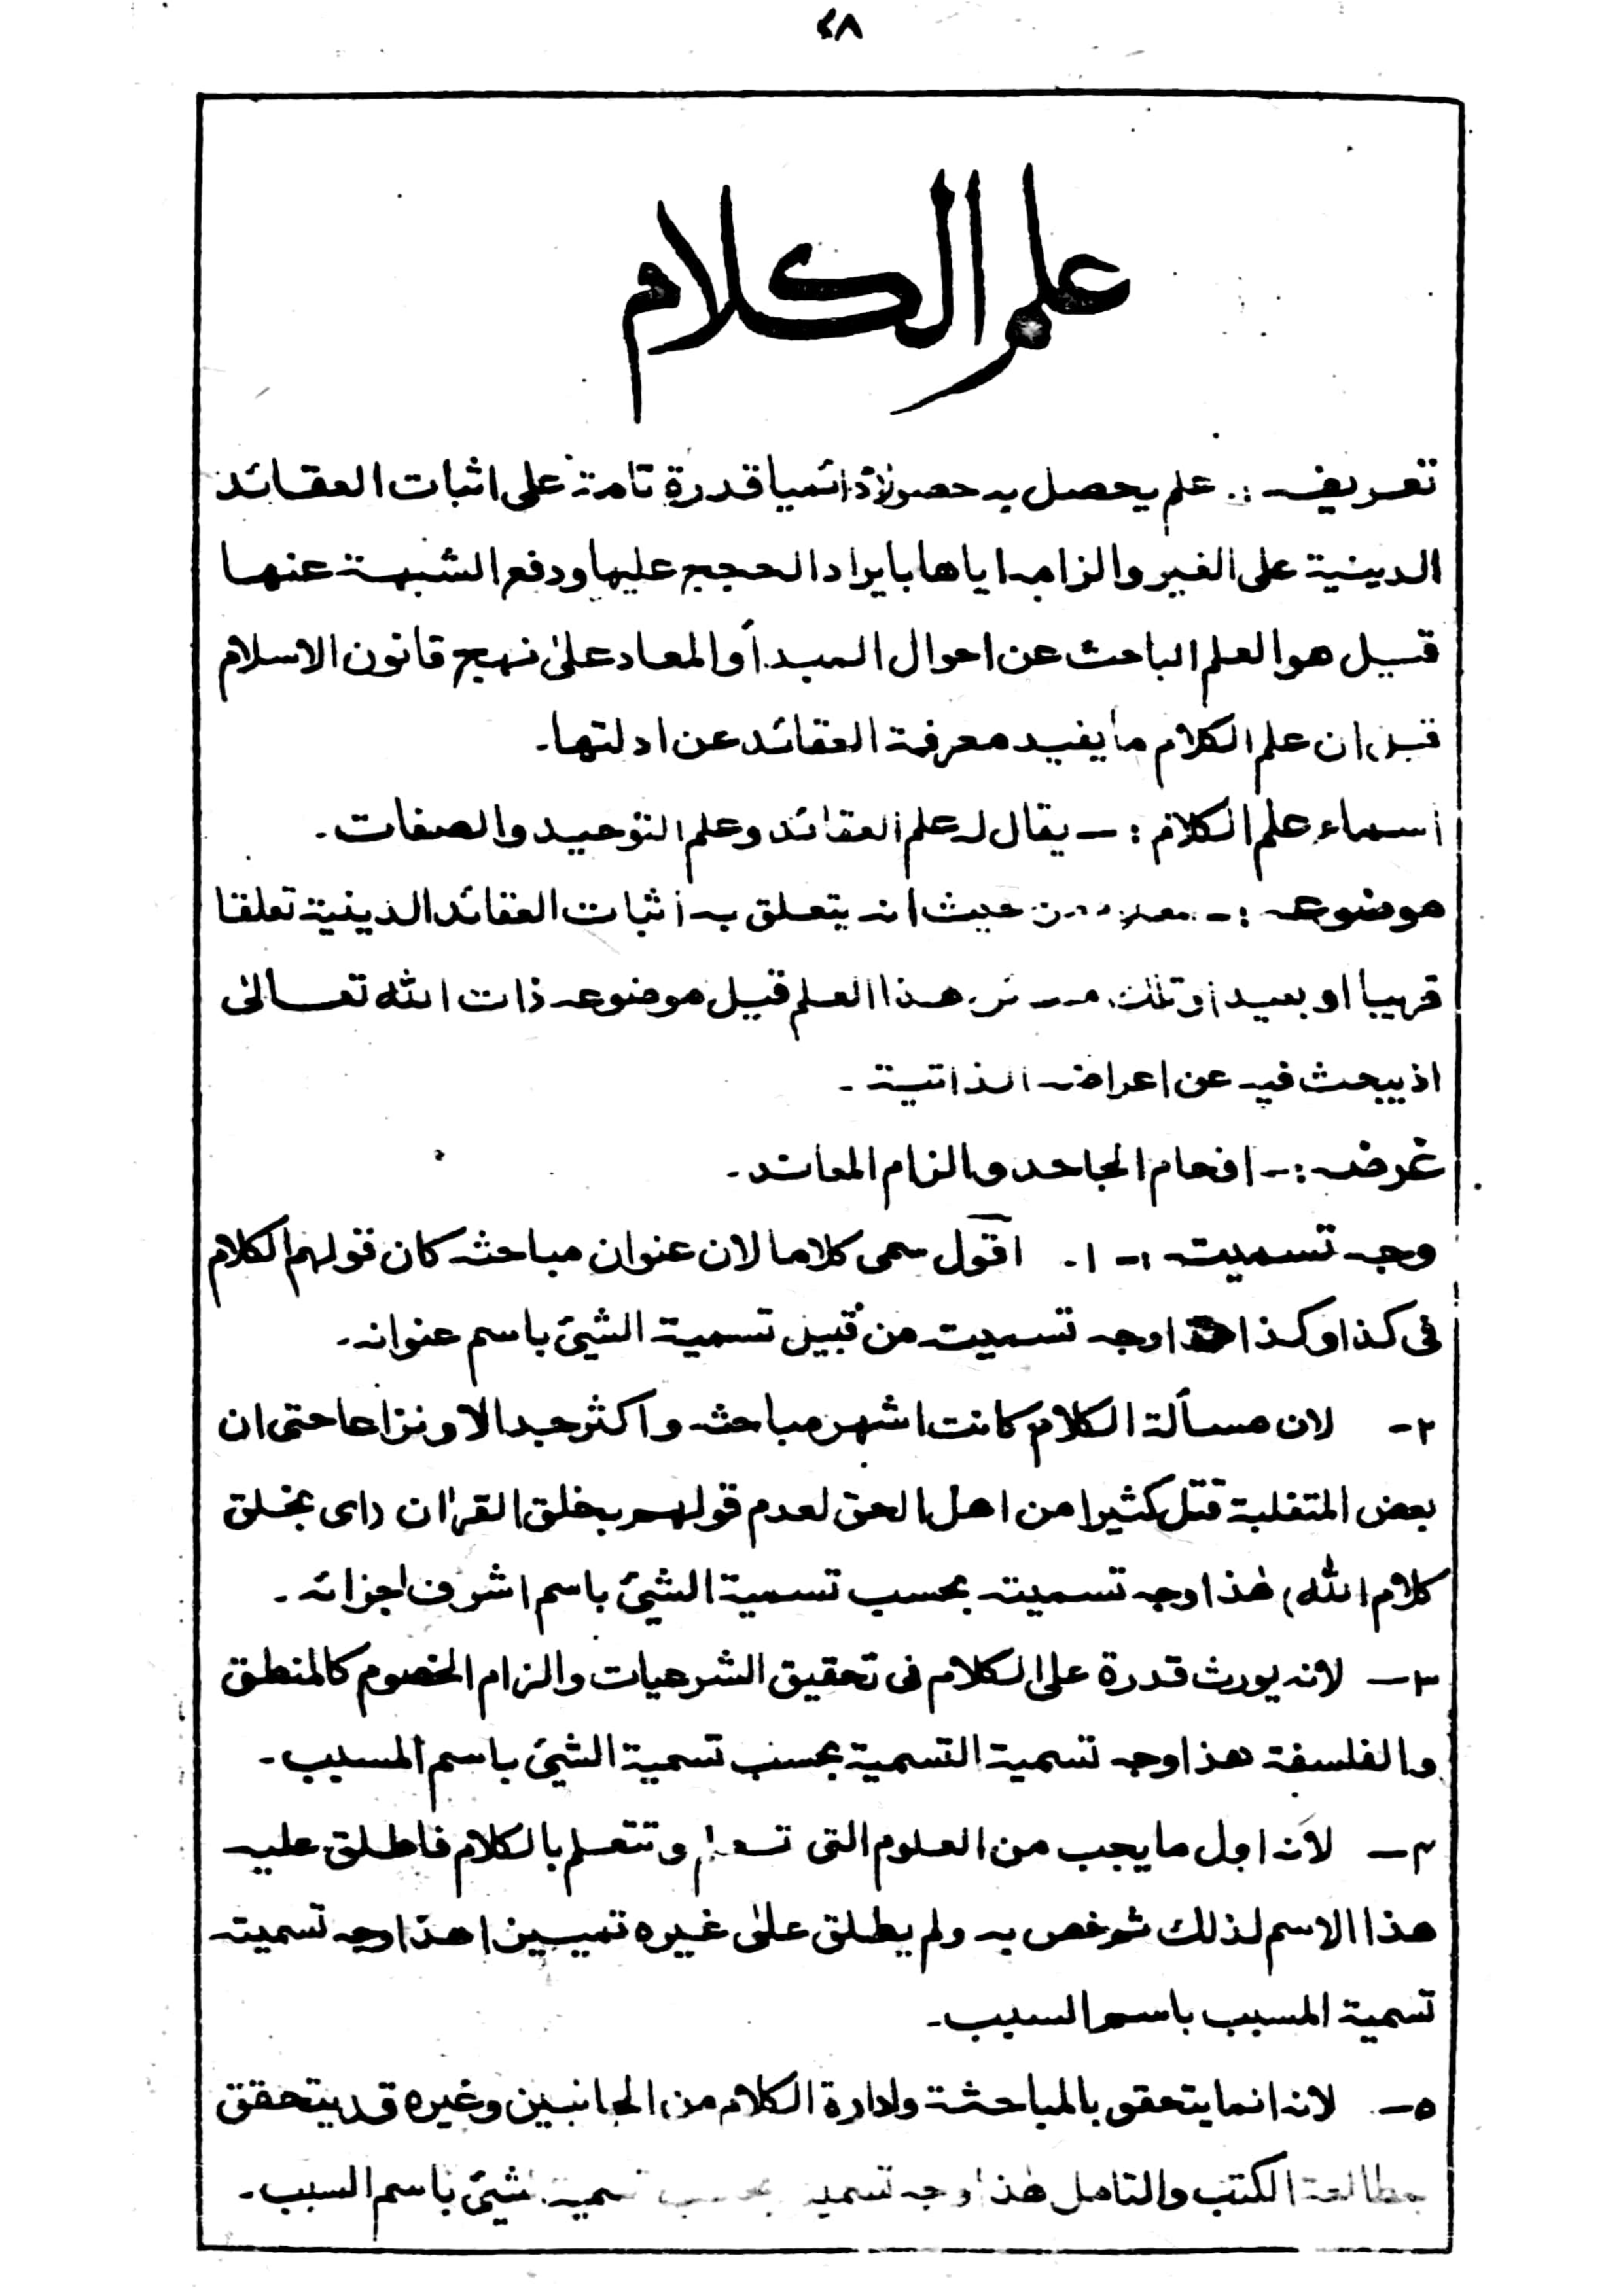 ٤٨
علم الكلام
تعريفه :. علم يحصل به حصولا دائميا قدرة تامة على اثبات العقائد
الدينية على الغير والزامه اياها بايراد الحجج عليها ودفع الشبهة عنها
قيل هو العلم الباحث عن احوال المبدأ والمعاد على نهج قانون الاسلام
قيل ان علم الكلام ما يفيد معرفة العقائد عن ادلتها۔
اسماء علم الكلام :- يقال له علم العقائد وعلم التوحيد والصفات۔
موضوعه :- حيث انه يتعلق به اثبات العقائد الدينية تعلقا
قريبا او بعيد او تلك هذا العلم قيل موضوعه ذات الله تعالى
اذ يبحث فيه عن اعراضه الذاتية۔
غرضه :- افحام الجاحد والزام المعاند۔
وجه تسميته :- ١. اقول سمى كلاما لان عنوان مباحثه كان قولهم الكلام
فى كذا وكذا هذا وجه تسميته من قبيل تسمية الشيئ باسم عنوانه۔
٢- لان مسألة الكلام كانت اشهر مباحثه واكثر جدالا و نزاعا حتى ان
بعض المتغلبة قتل كثيرا من اهل الحق لعدم قولهم بخلق القرآن (اى بخلق
كلام الله) هذا وجه تسميته بحسب تسمية الشيئ باسم اشرف اجزائه۔
٣- لانه يورث قدرة على الكلام فى تحقيق الشرعيات والزام الخصوم كالمنطق
والفلسفة هذا وجه تسمية التسمية بحسب تسمية الشيئ باسم المسبب۔
٤- لانه اول ما يجب من العلوم التى تعلم وتتعلم بالكلام فاطلق عليه
هذا الاسم لذلك ثم خص به ولم يطلق على غيره تمييزا هذا وجه تسميته
تسمية المسبب باسم السبب۔
٥- لانه انما يتحقق بالمباحثة وادارة الكلام من الجانبين وغيره قد يتحقق
بمطالعة الكتب والتامل هذا وجه تسميته بحسب تسمية الشيئ باسم السبب۔